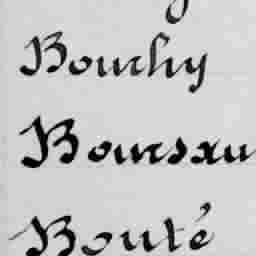 Bourhy
Boursau
Bouté